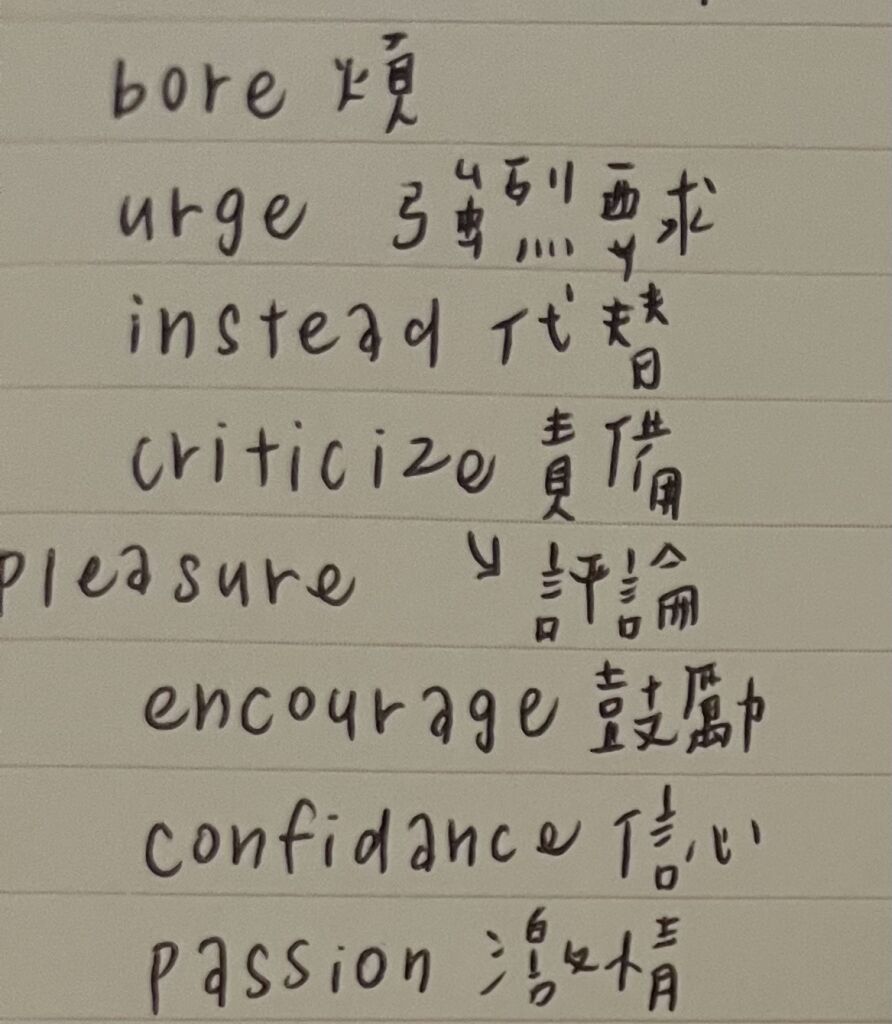 bore 煩
urge 強烈要求
instead 代替
criticize 責備
pleasure ↘ 評論
encourage 鼓勵
confidance 信心
passion 激情